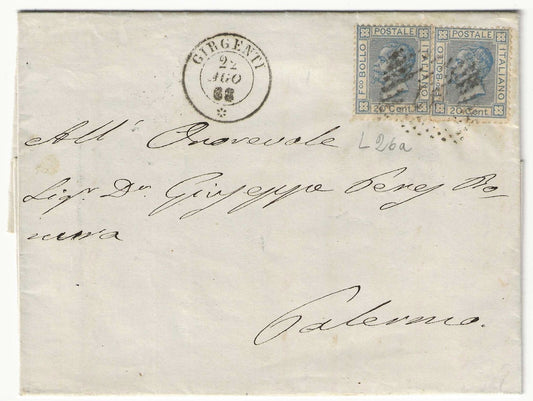 GIRGENTI
22
AGO
68
*
Fco BOLLO POSTALE ITALIANO
20 Cent
Fco BOLLO POSTALE ITALIANO
20 Cent
L26a
All' Onorevole
Sigr Dn Giuseppe Perez Ro-
Palermo.